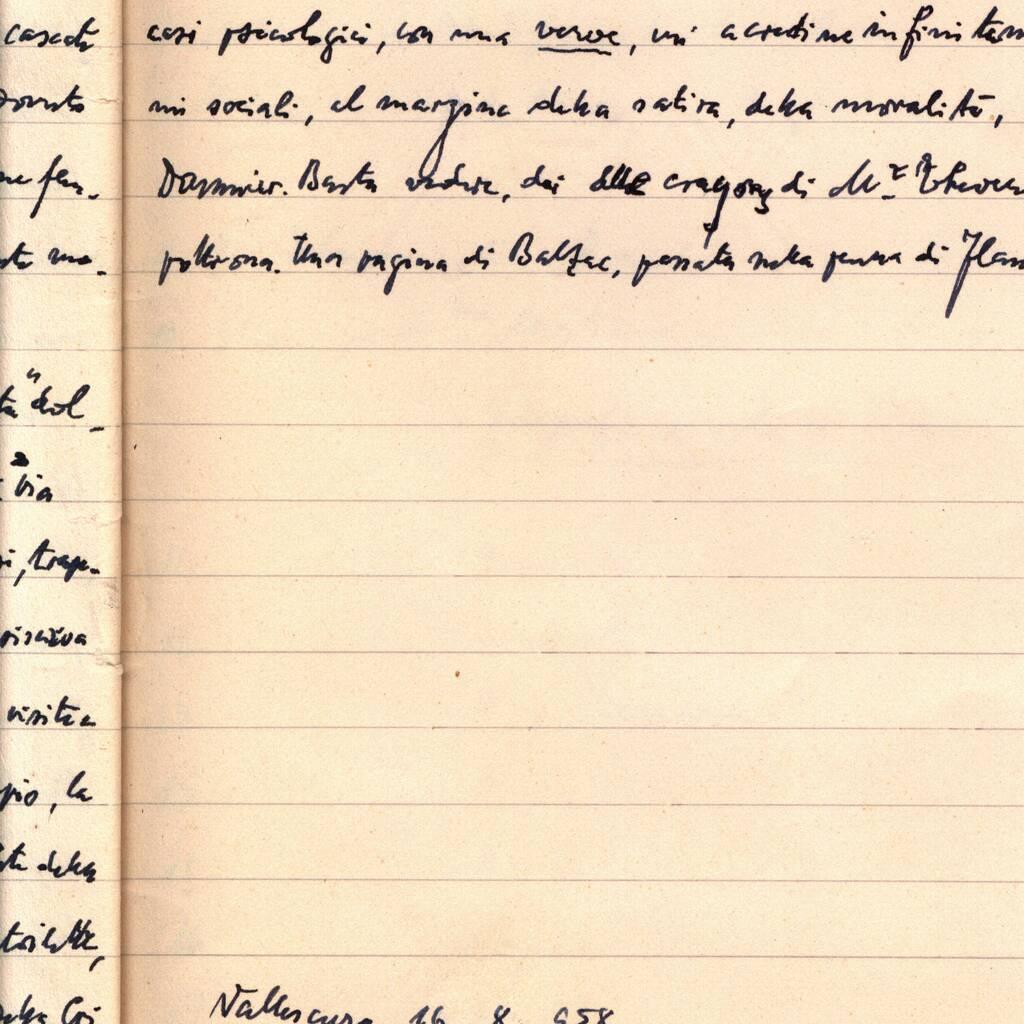 cascata
ne fem-
sta mo-
ta" dal-
Via
i, trap-
visitava
visita
pio, la
sta della
toilette,
della Cri
casi psicologici, con una verve, un' acredine infinitam
mi sociali, al margine della satira, della moralità,
Daumier. Basta vedere, dai crayons di M.
poltrona. Una pagina di Balzac, passata nella penna di Flau
Vallescura 16 8 958